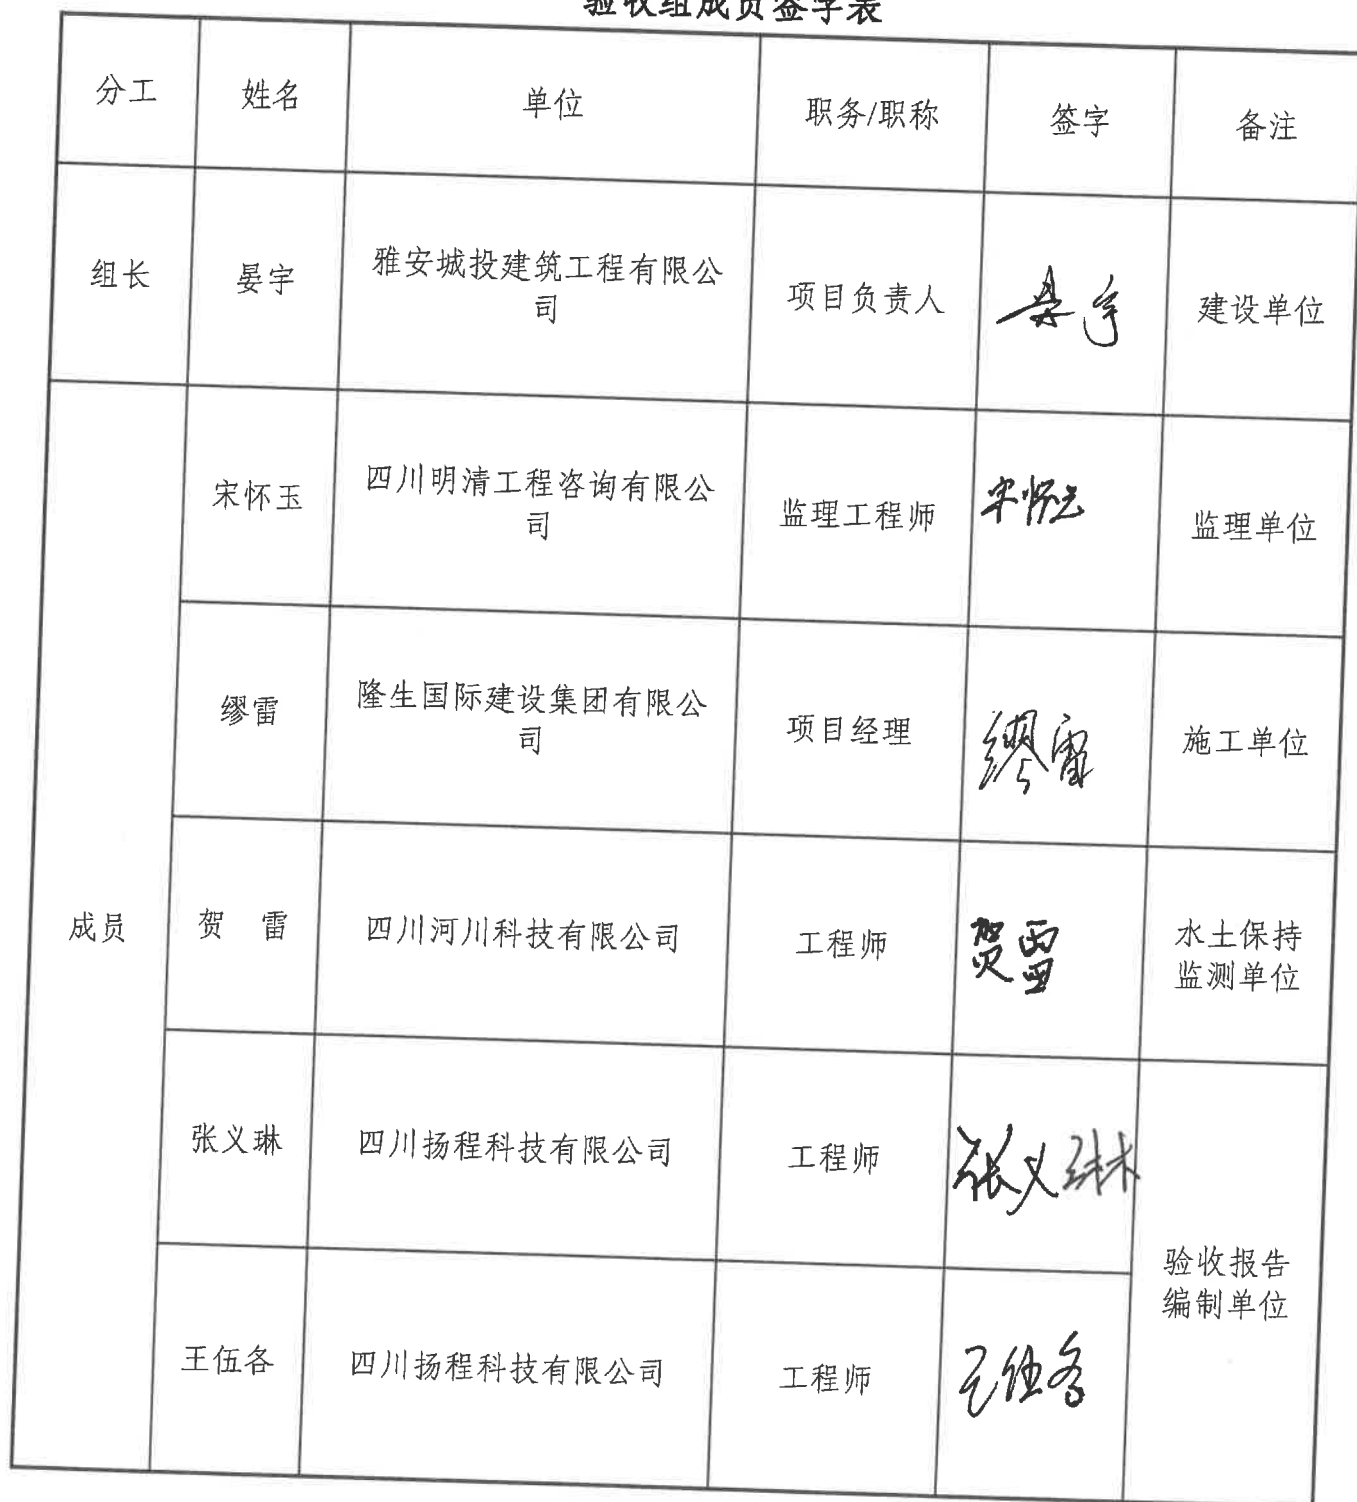 验收组成员签字表
分工 姓名 单位 职务/职称 签字 备注
组长 晏宇 雅安城投建筑工程有限公
司 项目负责人 晏宇 建设单位
成员
宋怀玉 四川明清工程咨询有限公
司 监理工程师 宋怀玉 监理单位
缪雷 隆生国际建设集团有限公
司 项目经理 缪雷 施工单位
贺 雷 四川河川科技有限公司 工程师 贺雷 水土保持
监测单位
张义琳 四川扬程科技有限公司 工程师 张义琳
验收报告
编制单位
王伍各 四川扬程科技有限公司 工程师 王伍各